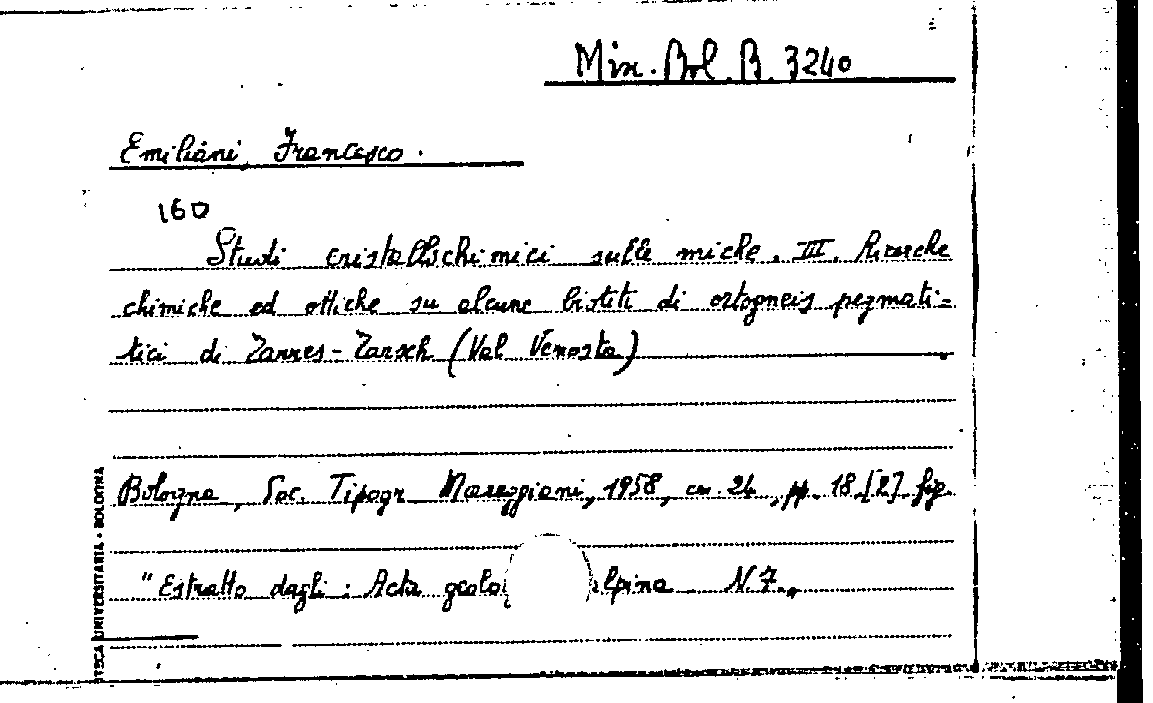 Min. Bol. B. 3240
Emiliani, Francesco.
160
Studi cristallochimici sulle miche. III. Ricerche
chimiche ed ottiche su alcune biotiti di ortogneis pegmati=
tici di Tarres-Tarsch (Val Venosta)
Bologna, Soc. Tipogr. Mareggiani, 1958, cm. 24, pp. 18 [2] fig.
"Estratto dagli: Acta geolo lpina N. 7.,
TECA UNIVERSITARIA • BOLOGNA